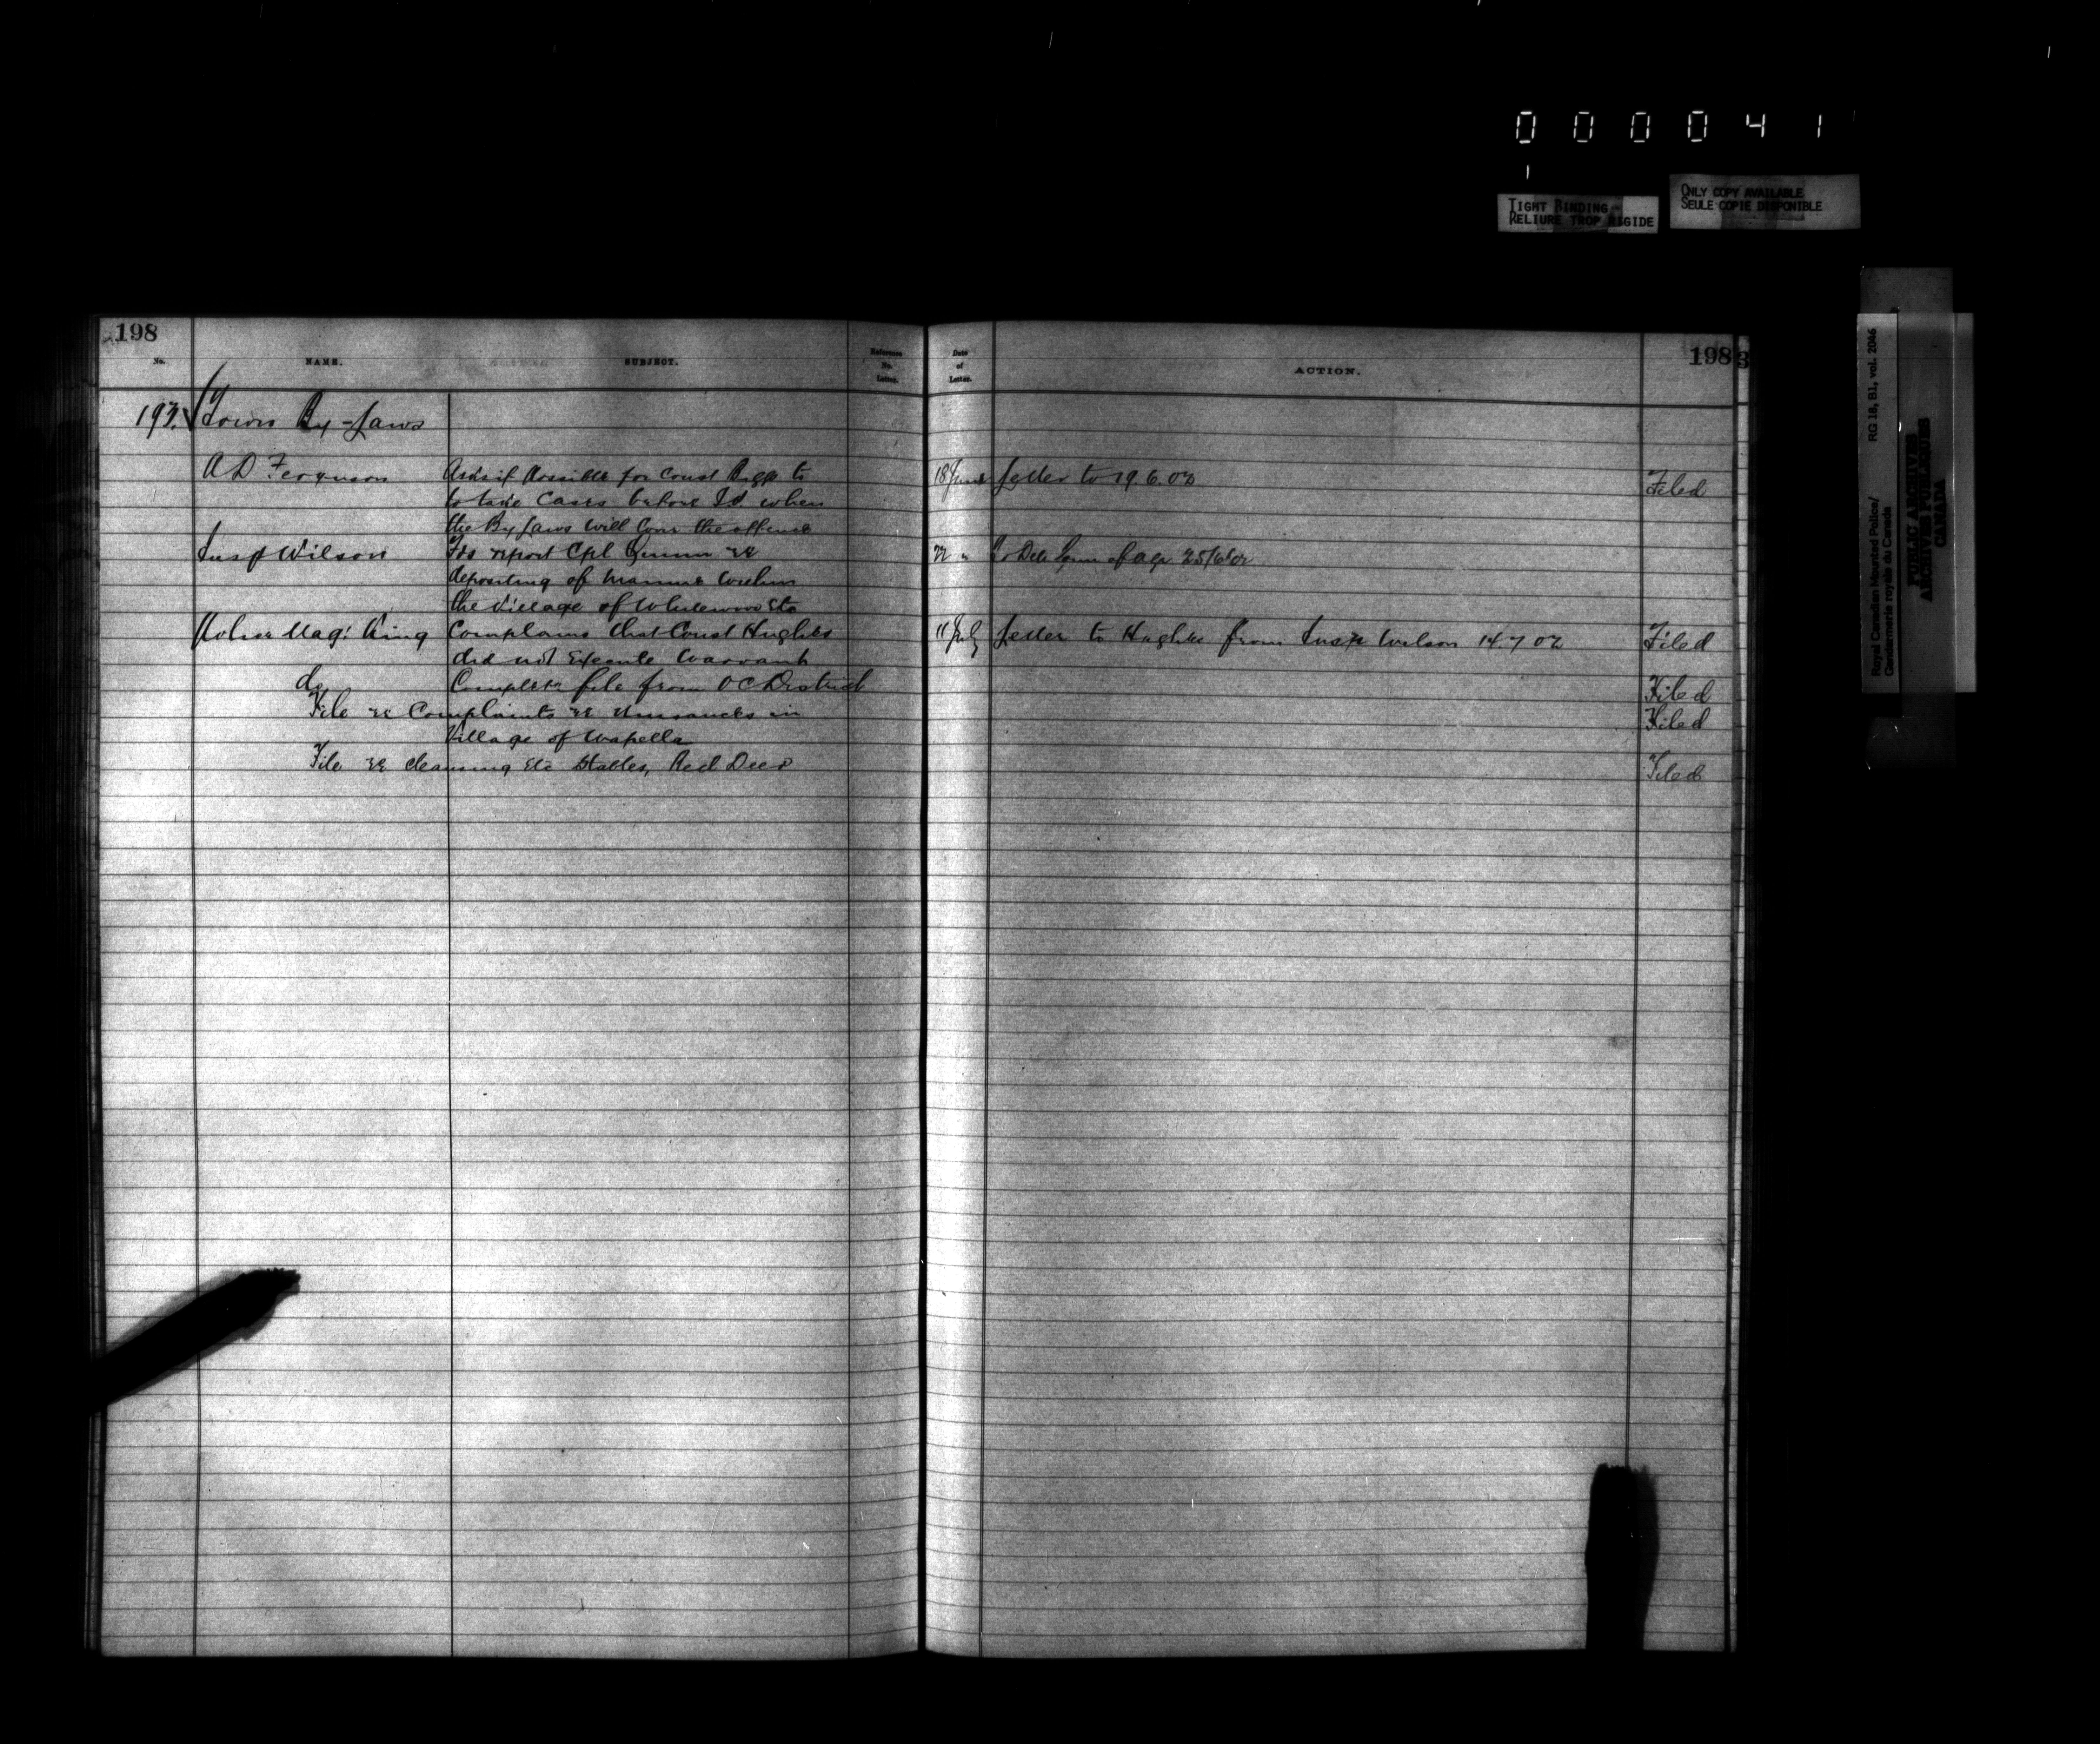 000041
TIGHT BINDING
RELIURE TROP RIGIDE
ONLY COPY AVAILABLE
SEULE COPIE DISPONIBLE
Royal Canadian Mounted Police/ RG 18, B1, vol. 2046
Gendarmerie royale du Canada
PUBLIC ARCHIVES
ARCHIVES PUBLIQUES
CANADA
198
No. NAME. SUBJECT. Reference No. Letter.
Date of Letter. ACTION. 198
193. Town By-Laws
A D Ferguson Asks if possible for Const to 18 June Letter to 19.6.02 Filed
to take cases before when
the By Laws will cover the offence
Insp Wilson Fds report Cpl Quinn re 22 " 25/6/02
depositing of manure within
the Village of Whitewood etc
Police Mag: King Complains that Const Hughes 11 July Letter to Hughes from Insp Wilson 14.7.02 Filed
did not execute warrant
do Complete file from O C District Filed
File re Complaints re nuisances in Filed
Village of Wapella
File re cleansing etc Stables, Red Deer Filed